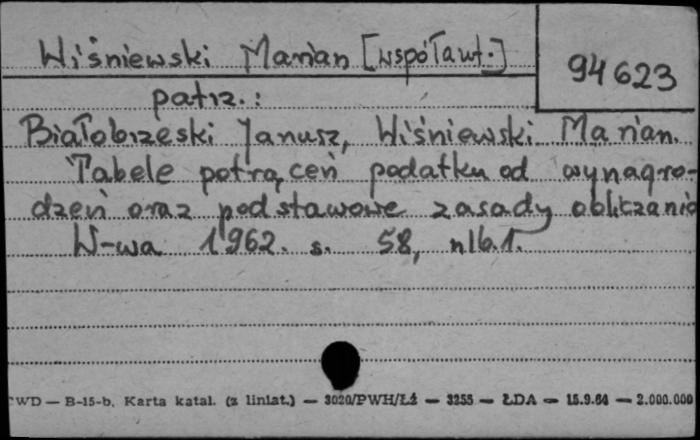 Wiśniewski Marian [współaut.]
94623
patrz.:
Białobrzeski Janusz, Wiśniewski Marian.
Tabele potrąceń podatku od wynagro-
dzeń oraz podstawowe zasady obliczania
W-wa 1962. s. 58, nlb.1.
CWD — B-15-b. Karta katal. (z liniat.) — 3020/PWH/Łź — 3255 — ŁDA — 15.9.64 — 2.000.000